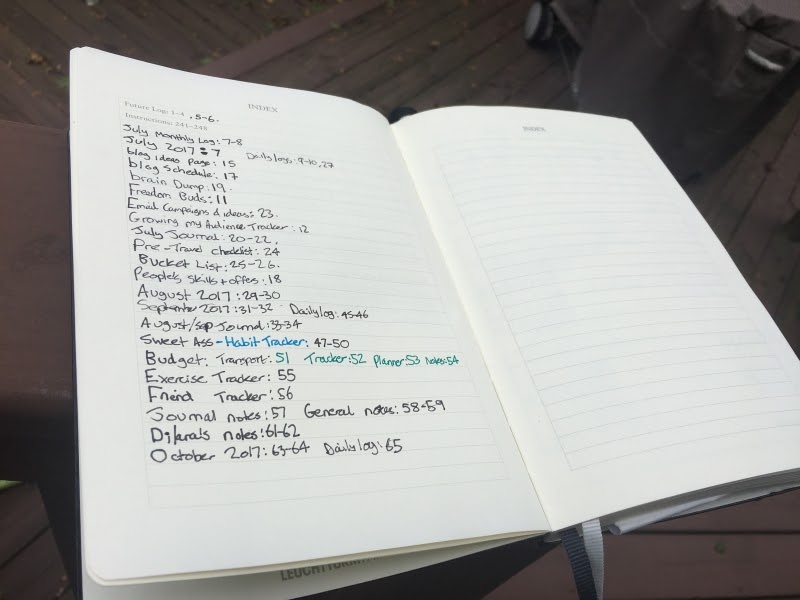 INDEX
Future Log: 1-4 , 5-6.
Instructions: 241-248
July Monthly Log: 7-8
July 2017: 7 Daily logs: 9-10, 27
blog ideas page: 15
blog Schedule: 17
brain Dump: 19.
Freedom Buds: 11
Email Campaigns & ideas: 23.
Growing my Audience Tracker: 12
July Journal: 20-22.
Pre-Travel checklist: 24
Bucket List: 25-26.
People's skills + offes: 18
August 2017: 29-30
September 2017: 31-32 Dailylog: 45-46
August/sep Journal: 33-34
Sweet Ass-Habit Tracker: 47-50
Budget: Transport: 51 Tracker: 52 Planner: 53 Notes: 54
Exercise Tracker: 55
Friend Tracker: 56
Journal notes: 57 General notes: 58-59
notes: 61-62
October 2017: 63-64 Dailylog: 65
INDEX